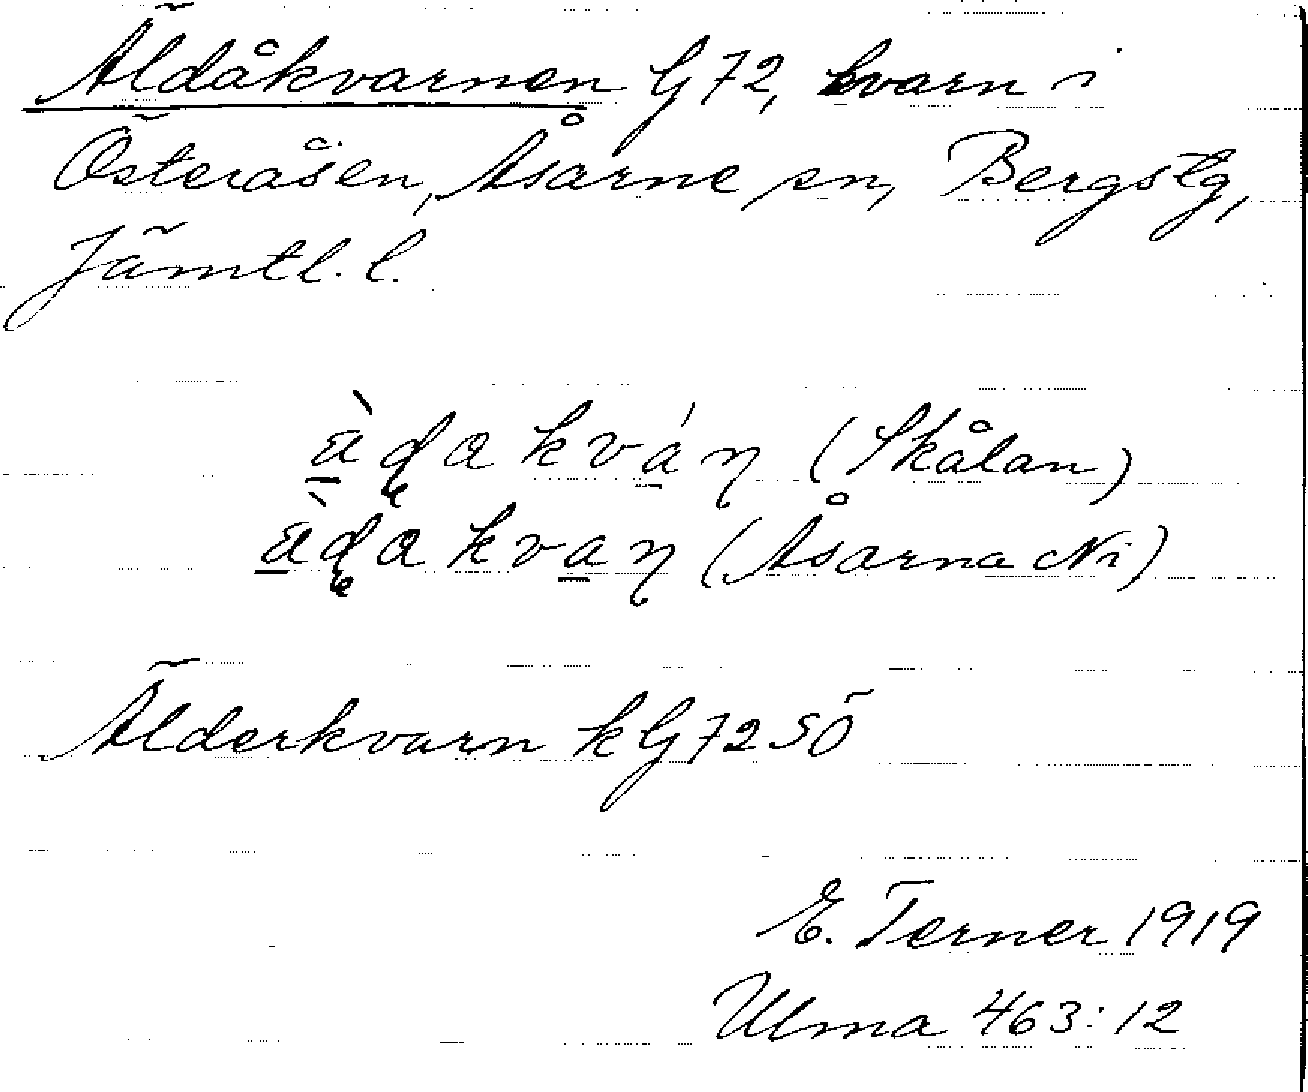 Äldåkvarnen G72, kvarn i
Österåsen, Åsarne sn, Bergs tg,
Jämtl. l.
(Skålan)
(Åsarna Ni)
Älderkvarn k G72 SÖ
E. Terner 1919
Ulma 463:12